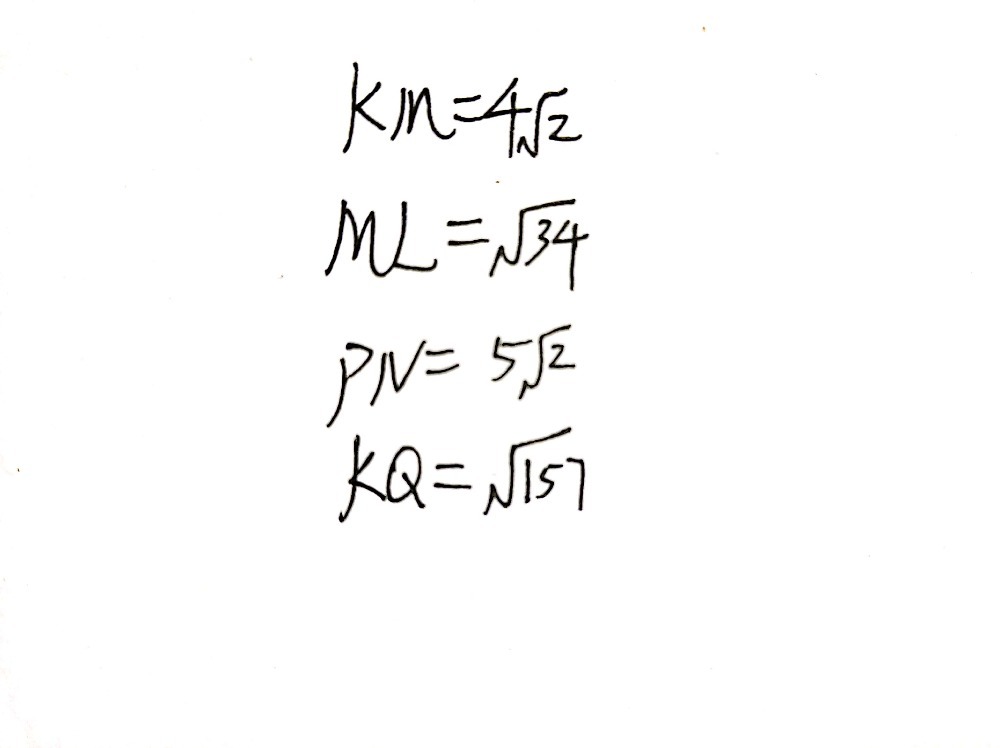 KM=4√2
ML=√34
PN=5√2
KQ=√157